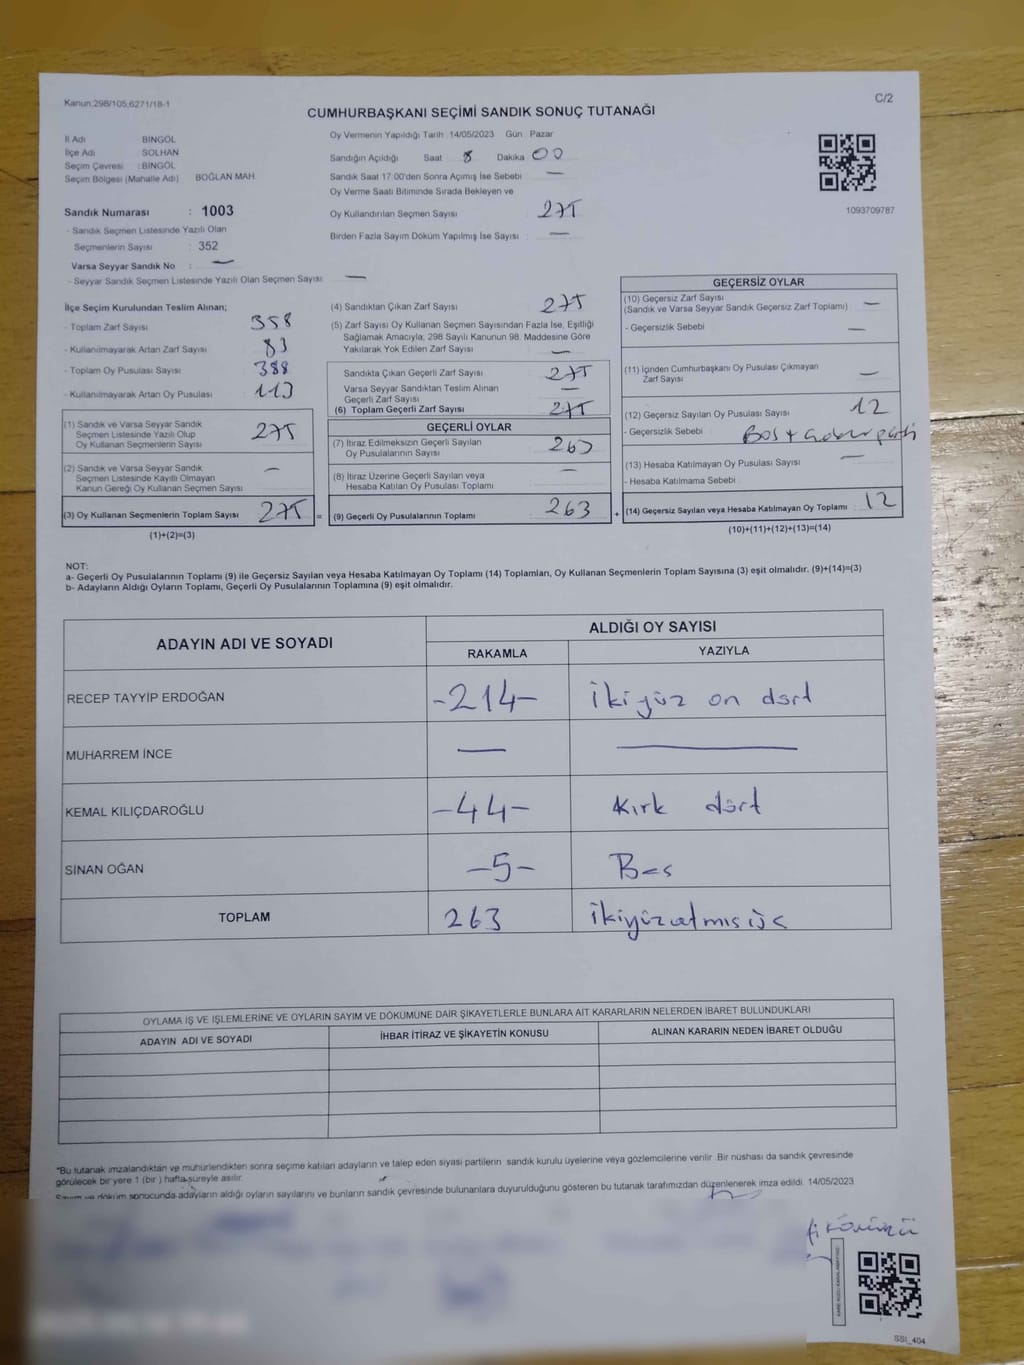 Kanun:298/105,6271/18-1
C/2
CUMHURBAŞKANI SEÇİMİ SANDIK SONUÇ TUTANAĞI
İl Adı BİNGÖL
İlçe Adı : SOLHAN
Seçim Çevresi : BİNGÖL
Seçim Bölgesi (Mahalle Adı) BOĞLAN MAH.
Sandık Numarası : 1003
- Sandık Seçmen Listesinde Yazılı Olan
Seçmenlerin Sayısı : 352
Varsa Seyyar Sandık No : —
- Seyyar Sandık Seçmen Listesinde Yazılı Olan Seçmen Sayısı: —
Oy Vermenin Yapıldığı Tarih : 14/05/2023 Gün : Pazar
Sandığın Açıldığı Saat 8 Dakika 00
Sandık Saat 17:00'den Sonra Açımış İse Sebebi —
Oy Verme Saati Bitiminde Sırada Bekleyen ve
Oy Kullandırılan Seçmen Sayısı 275
Birden Fazla Sayım Döküm Yapılmış İse Sayısı : —
1093709787
İlçe Seçim Kurulundan Teslim Alınan;
- Toplam Zarf Sayısı 358
- Kullanılmayarak Artan Zarf Sayısı 83
- Toplam Oy Pusulası Sayısı 388
- Kullanılmayarak Artan Oy Pusulası 113
(1) Sandık ve Varsa Seyyar Sandık
Seçmen Listesinde Yazılı Olup
Oy Kullanan Seçmenlerin Sayısı 275
(2) Sandık ve Varsa Seyyar Sandık
Seçmen Listesinde Kayıtlı Olmayan
Kanun Gereği Oy Kullanan Seçmen Sayısı —
(3) Oy Kullanan Seçmenlerin Toplam Sayısı 275 =
(1)+(2)=(3)
(4) Sandıktan Çıkan Zarf Sayısı 275
(5) Zarf Sayısı Oy Kullanan Seçmen Sayısından Fazla İse, Eşitliği
Sağlamak Amacıyla, 298 Sayılı Kanunun 98. Maddesine Göre
Yakılarak Yok Edilen Zarf Sayısı —
Sandıkta Çıkan Geçerli Zarf Sayısı 275
Varsa Seyyar Sandıktan Teslim Alınan
Geçerli Zarf Sayısı —
(6) Toplam Geçerli Zarf Sayısı 275
GEÇERLİ OYLAR
(7) İtiraz Edilmeksizin Geçerli Sayılan
Oy Pusulalarının Sayısı 263
(8) İtiraz Üzerine Geçerli Sayılan veya
Hesaba Katılan Oy Pusulası Toplamı —
(9) Geçerli Oy Pusulalarının Toplamı 263 +
GEÇERSİZ OYLAR
(10) Geçersiz Zarf Sayısı
(Sandık ve Varsa Seyyar Sandık Geçersiz Zarf Toplamı) —
- Geçersizlik Sebebi —
(11) İçinden Cumhurbaşkanı Oy Pusulası Çıkmayan
Zarf Sayısı —
(12) Geçersiz Sayılan Oy Pusulası Sayısı 12
- Geçersizlik Sebebi : Boş +
(13) Hesaba Katılmayan Oy Pusulası Sayısı —
- Hesaba Katılmama Sebebi
(14) Geçersiz Sayılan veya Hesaba Katılmayan Oy Toplamı 12
(10)+(11)+(12)+(13)=(14)
NOT:
a- Geçerli Oy Pusulalarının Toplamı (9) ile Geçersiz Sayılan veya Hesaba Katılmayan Oy Toplamı (14) Toplamları, Oy Kullanan Seçmenlerin Toplam Sayısına (3) eşit olmalıdır. (9)+(14)=(3)
b- Adayların Aldığı Oyların Toplamı, Geçerli Oy Pusulalarının Toplamına (9) eşit olmalıdır.
ADAYIN ADI VE SOYADI ALDIĞI OY SAYISI
RAKAMLA YAZIYLA
RECEP TAYYİP ERDOĞAN -214- İkiyüz on dört
MUHARREM İNCE — —
KEMAL KILIÇDAROĞLU -44- Kırk dört
SİNAN OĞAN -5- Beş
TOPLAM 263 İkiyüzatmışüç
OYLAMA İŞ VE İŞLEMLERİNE VE OYLARIN SAYIM VE DÖKÜMÜNE DAİR ŞİKAYETLERLE BUNLARA AİT KARARLARIN NELERDEN İBARET BULUNDUKLARI
ADAYIN ADI VE SOYADI İHBAR İTİRAZ VE ŞİKAYETİN KONUSU ALINAN KARARIN NEDEN İBARET OLDUĞU
*Bu tutanak imzalandıktan ve mühürlendikten sonra seçime katılan adayların ve talep eden siyasi partilerin sandık kurulu üyelerine veya gözlemcilerine verilir. Bir nüshası da sandık çevresinde
görülecek bir yere 1 (bir ) hafta süreyle asılır.
Sayım ve döküm sonucunda adayların aldığı oyların sayılarını ve bunların sandık çevresinde bulunanlara duyurulduğunu gösteren bu tutanak tarafımızdan düzenlenerek imza edildi. 14/05/2023
SSI_404